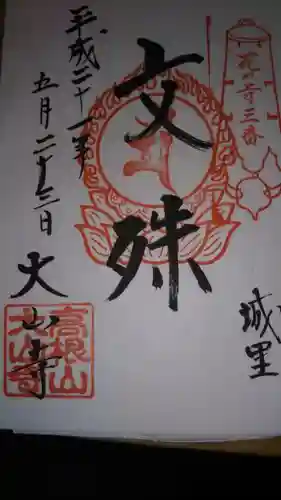 城里
花の寺三番
文殊
平成二十一年
五月二十三日
大山寺
高根山
大山寺